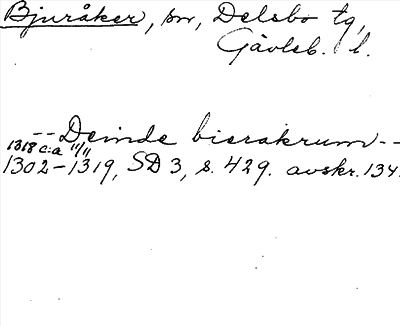 Bjuråker, sn, Delsbo tg,
Gävleb. l.
-- Deinde bierakrum --
1318 c:a 11/11
1302-1319, SD 3, s. 429. avskr. 134